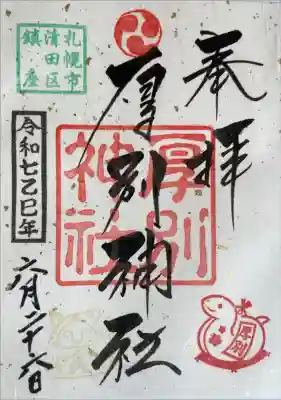 奉拝
厚別神社
厚別
神社
札幌市
清田区
鎮座
令和七乙巳年
六月二十六日
厚別